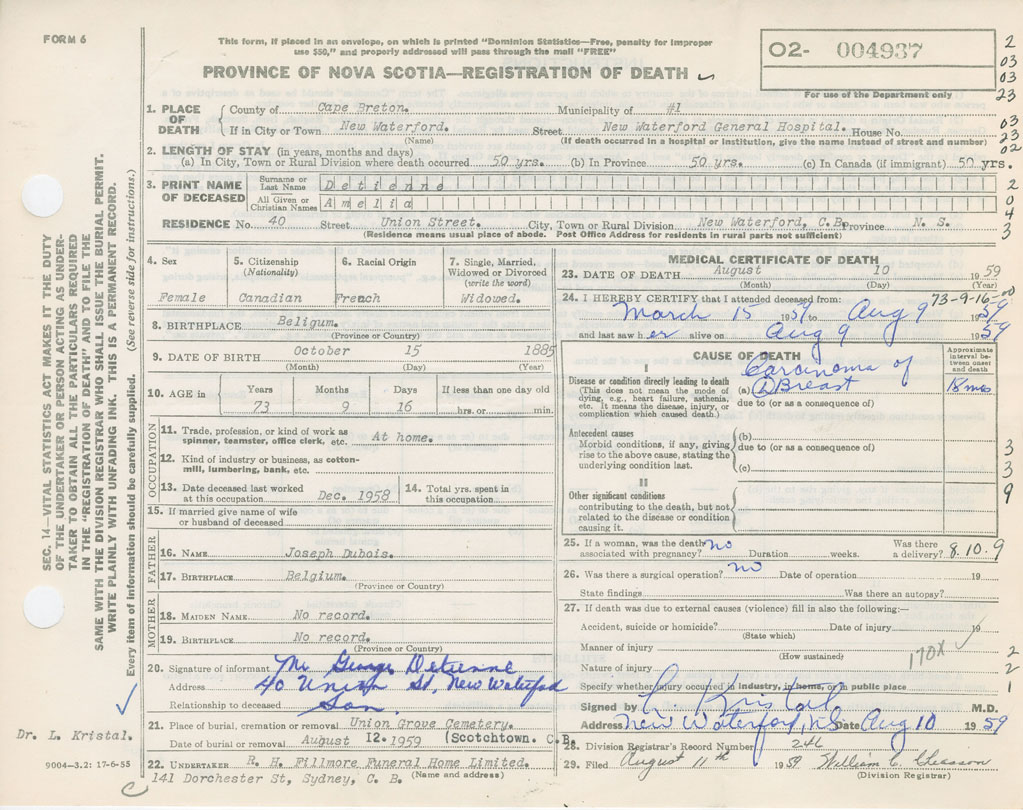 FORM 6
This form, if placed in an envelope, on which is printed "Dominion Statistics—Free, penalty for improper
use $50," and properly addressed will pass through the mail "FREE"
PROVINCE OF NOVA SCOTIA—REGISTRATION OF DEATH
02- 004937
For use of the Department only
2
03
03
23
03
23
02
2
0
4
3
SEC. 14—VITAL STATISTICS ACT MAKES IT THE DUTY
OF THE UNDERTAKER OR PERSON ACTING AS UNDER-
TAKER TO OBTAIN ALL THE PARTICULARS REQUIRED
IN THE "REGISTRATION OF DEATH" AND TO FILE THE
SAME WITH THE DIVISION REGISTRAR WHO SHALL ISSUE THE BURIAL PERMIT.
WRITE PLAINLY WITH UNFADING INK. THIS IS A PERMANENT RECORD.
Every item of information should be carefully supplied. (See reverse side for instructions.)
1. PLACE OF DEATH
County of Cape Breton. Municipality of #1
If in City or Town New Waterford. Street New Waterford General Hospital. House No.
(Name) (If death occurred in a hospital or institution, give the name instead of street and number)
2. LENGTH OF STAY (in years, months and days)
(a) In City, Town or Rural Division where death occurred 50 yrs. (b) In Province 50 yrs. (c) In Canada (if immigrant) 50 yrs.
3. PRINT NAME OF DECEASED
Surname or Last Name Detienne
All Given or Christian Names Amelia
RESIDENCE No. 40 Street Union Street. City, Town or Rural Division New Waterford, C.B. Province N. S.
(Residence means usual place of abode. Post Office Address for residents in rural parts not sufficient)
4. Sex
Female
5. Citizenship
(Nationality)
Canadian
6. Racial Origin
French
7. Single, Married,
Widowed or Divorced
(write the word)
Widowed.
8. BIRTHPLACE Beligum.
(Province or Country)
9. DATE OF BIRTH October 15 1885
(Month) (Day) (Year)
10. AGE in
Years Months Days If less than one day old
73 9 16 hrs. or min.
OCCUPATION
11. Trade, profession, or kind of work as
spinner, teamster, office clerk, etc. At home.
12. Kind of industry or business, as cotton-
mill, lumbering, bank, etc.
13. Date deceased last worked
at this occupation Dec. 1958
14. Total yrs. spent in
this occupation
15. If married give name of wife
or husband of deceased
FATHER
16. NAME Joseph Dubois.
17. BIRTHPLACE Belgium.
(Province or Country)
MOTHER
18. MAIDEN NAME No record.
19. BIRTHPLACE No record.
(Province or Country)
20. Signature of informant Mr George Detienne
Address 40 Union St, New Waterford
Relationship to deceased Son.
21. Place of burial, cremation or removal Union Grove Cemetery.
Date of burial or removal August 12. 1959 (Scotchtown. C.B.
22. UNDERTAKER R. H. Fillmore Funeral Home Limited.
141 Dorchester St, Sydney, C. B. (Name and address)
Dr. L. Kristal.
9004—3.2: 17-6-55
MEDICAL CERTIFICATE OF DEATH
23. DATE OF DEATH August 10 1959
(Month) (Day) (Year)
24. I HEREBY CERTIFY that I attended deceased from: 73-9-16-00
March 15 1959 to Aug 9 1959
and last saw her alive on Aug 9 1959
CAUSE OF DEATH
Approximate
interval be-
tween onset
and death
I
Disease or condition directly leading to death
(This does not mean the mode of
dying, e.g., heart failure, asthenia,
etc. It means the disease, injury, or
complication which caused death.)
Carcinoma of
(a) (L) Breast 18 mos
due to (or as a consequence of)
Antecedent causes
Morbid conditions, if any, giving
rise to the above cause, stating the
underlying condition last.
(b)
due to (or as a consequence of)
(c)
II
Other significant conditions
contributing to the death, but not
related to the disease or condition
causing it.
3
3
9
25. If a woman, was the death
associated with pregnancy? no Duration weeks. Was there
a delivery? 8.10.9
26. Was there a surgical operation? no Date of operation 19
State findings Was there an autopsy?
27. If death was due to external causes (violence) fill in also the following:—
Accident, suicide or homicide? Date of injury 19
(State which)
Manner of injury
(How sustained)
170X
Nature of injury
Specify whether injury occurred in industry, in home, or in public place
2
2
1
Signed by L. Kristal M.D.
Address New Waterford, N.S Date Aug 10 1959
28. Division Registrar's Record Number 246
29. Filed August 11th 1959 William C. Gleason
(Division Registrar)